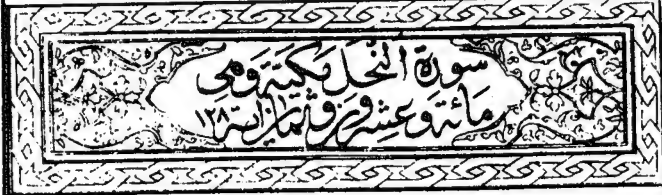 سورة النحل مكية وهى
مائة وعشرون وثمان اية ١٢٨